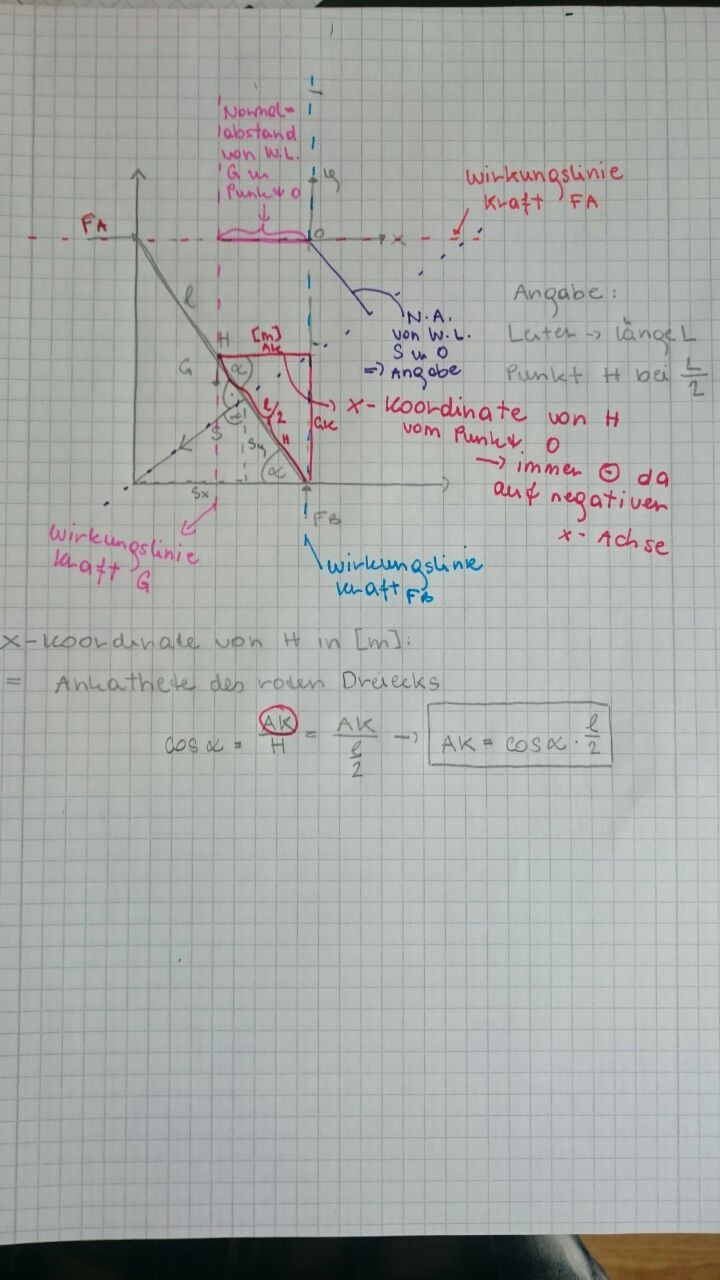 Normal=
abstand
von W.L.
G u
Punkt O
y
FA
O
x
Wirkungslinie
Kraft FA
l
N.A.
von W.L.
S u O
=> Angabe
Angabe:
Leiter -> Länge L
Punkt H bei L/2
H
[m]
AK
G
α
l/2
GK
X-Koordinate von H
vom Punkt O
-> immer ⊖ da
auf negativer
x-Achse
S
Sy
H
α
Sx
FB
Wirkungslinie
Kraft G
Wirkungslinie
Kraft FB
X-Koordinate von H in [m]:
= Ankathete des roten Dreiecks
cos α = AK/H = AK/(l/2) -> AK = cos α · l/2